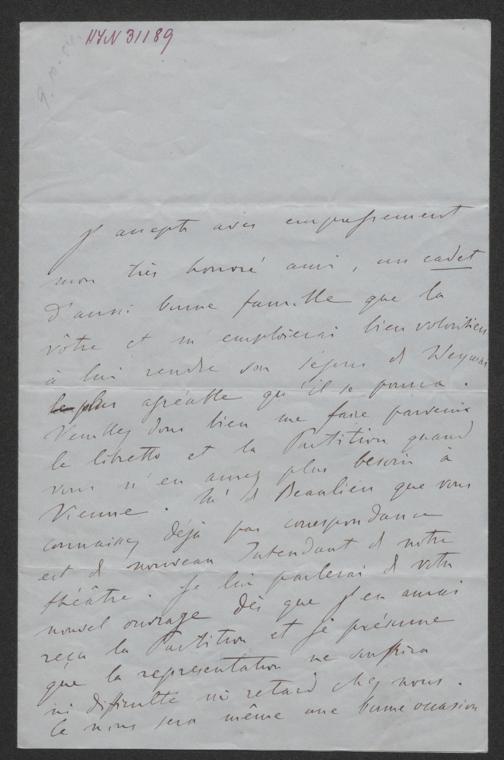 HYN 31189
J'accepte avec empressement
mon très honoré ami, un cadet
d'aussi bonne famille que la
vôtre et m'emploierai bien volontiers
à lui rendre son séjour de Weymar
le plus agréable qu'il se pourra.
Veuillez donc bien me faire parvenir
le libretto et la Partition quand
vous n'en aurez plus besoin à
Vienne. Mr de Beaulieu que vous
connaissez déjà par correspondance
est de nouveau Intendant de notre
théâtre. Je lui parlerai de votre
nouvel ouvrage dès que j'en aurai
reçu la Partition et je présume
que la représentation ne souffrira
ni difficulté ni retard chez nous.
Ce nous sera même une bonne occasion